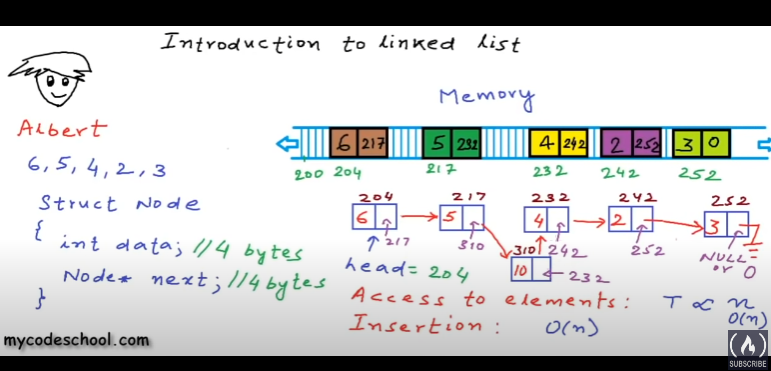 Introduction to linked list
Albert
6, 5, 4, 2, 3
Struct Node
{
int data; //4 bytes
Node* next; //4 bytes
}
Memory
6 217 5 232 4 242 2 252 3 0
200 204 217 232 242 252
204 217 232 242 252
6 5 4 2 3
217 310 242 252 NULL or 0
310
10 232
head = 204
Access to elements: T ∝ n
O(n)
Insertion: O(n)
mycodeschool.com
SUBSCRIBE